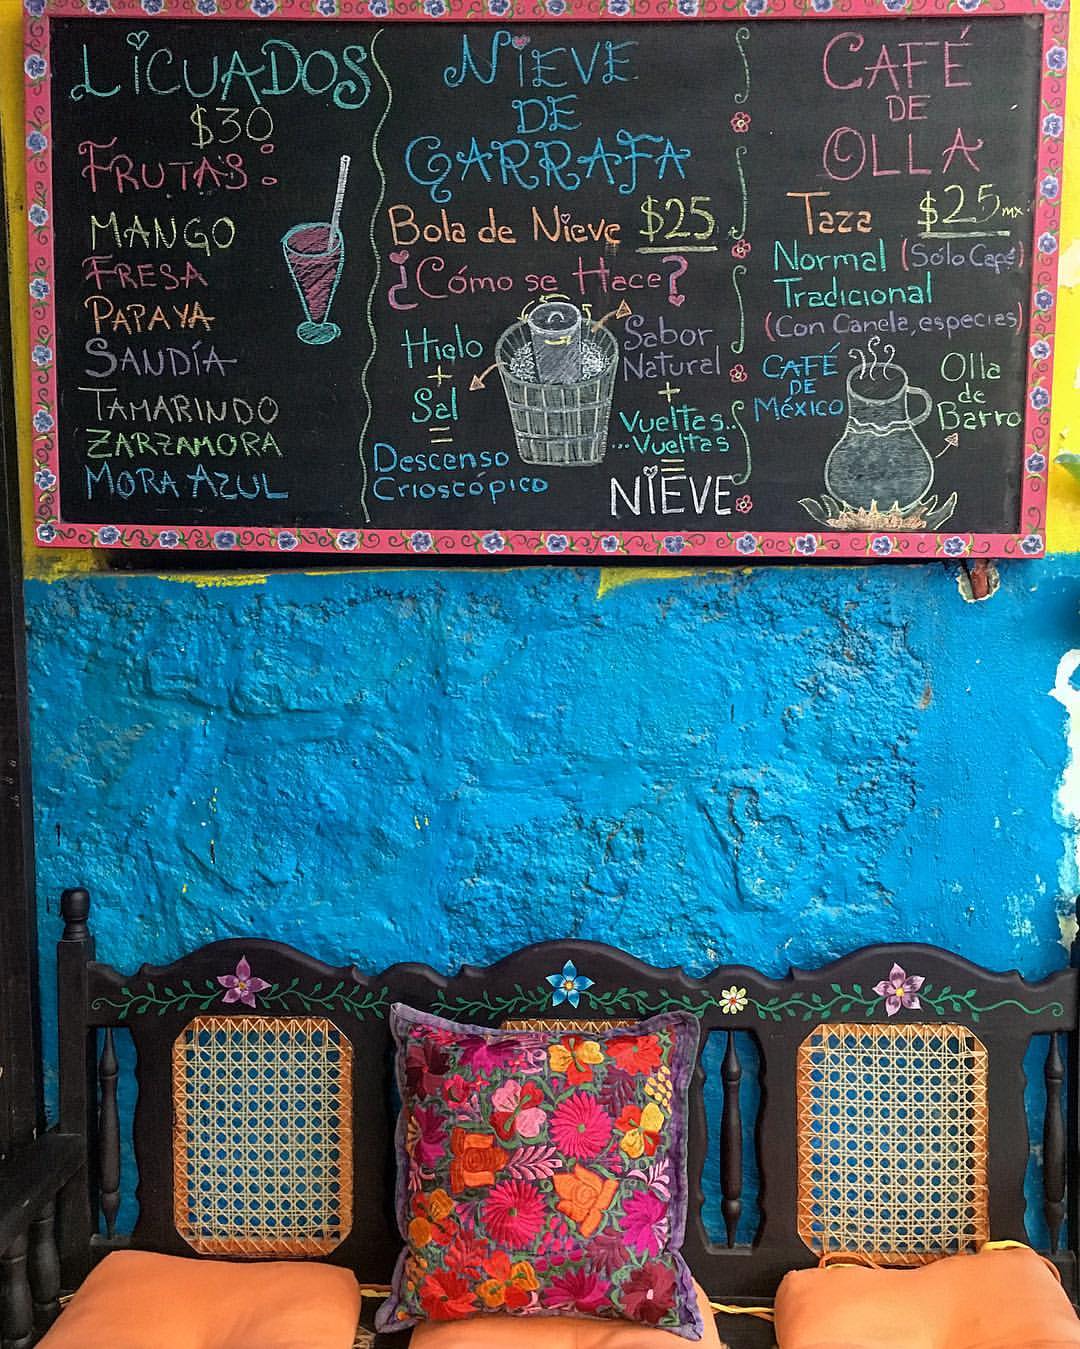 LICUADOS
$30
FRUTAS:
MANGO
FRESA
PAPAYA
SANDÍA
TAMARINDO
ZARZAMORA
MORA AZUL
NIEVE
DE
GARRAFA
Bola de Nieve $25
¿Cómo se Hace?
Hielo
+
Sal
=
Descenso
Crioscópico
Sabor
Natural
+
Vueltas..
...Vueltas
=
NIEVE
CAFÉ
DE
OLLA
Taza $25 mx
Normal (Sólo Café)
Tradicional
(Con Canela, especias)
CAFÉ
DE
MÉXICO
Olla
de
Barro